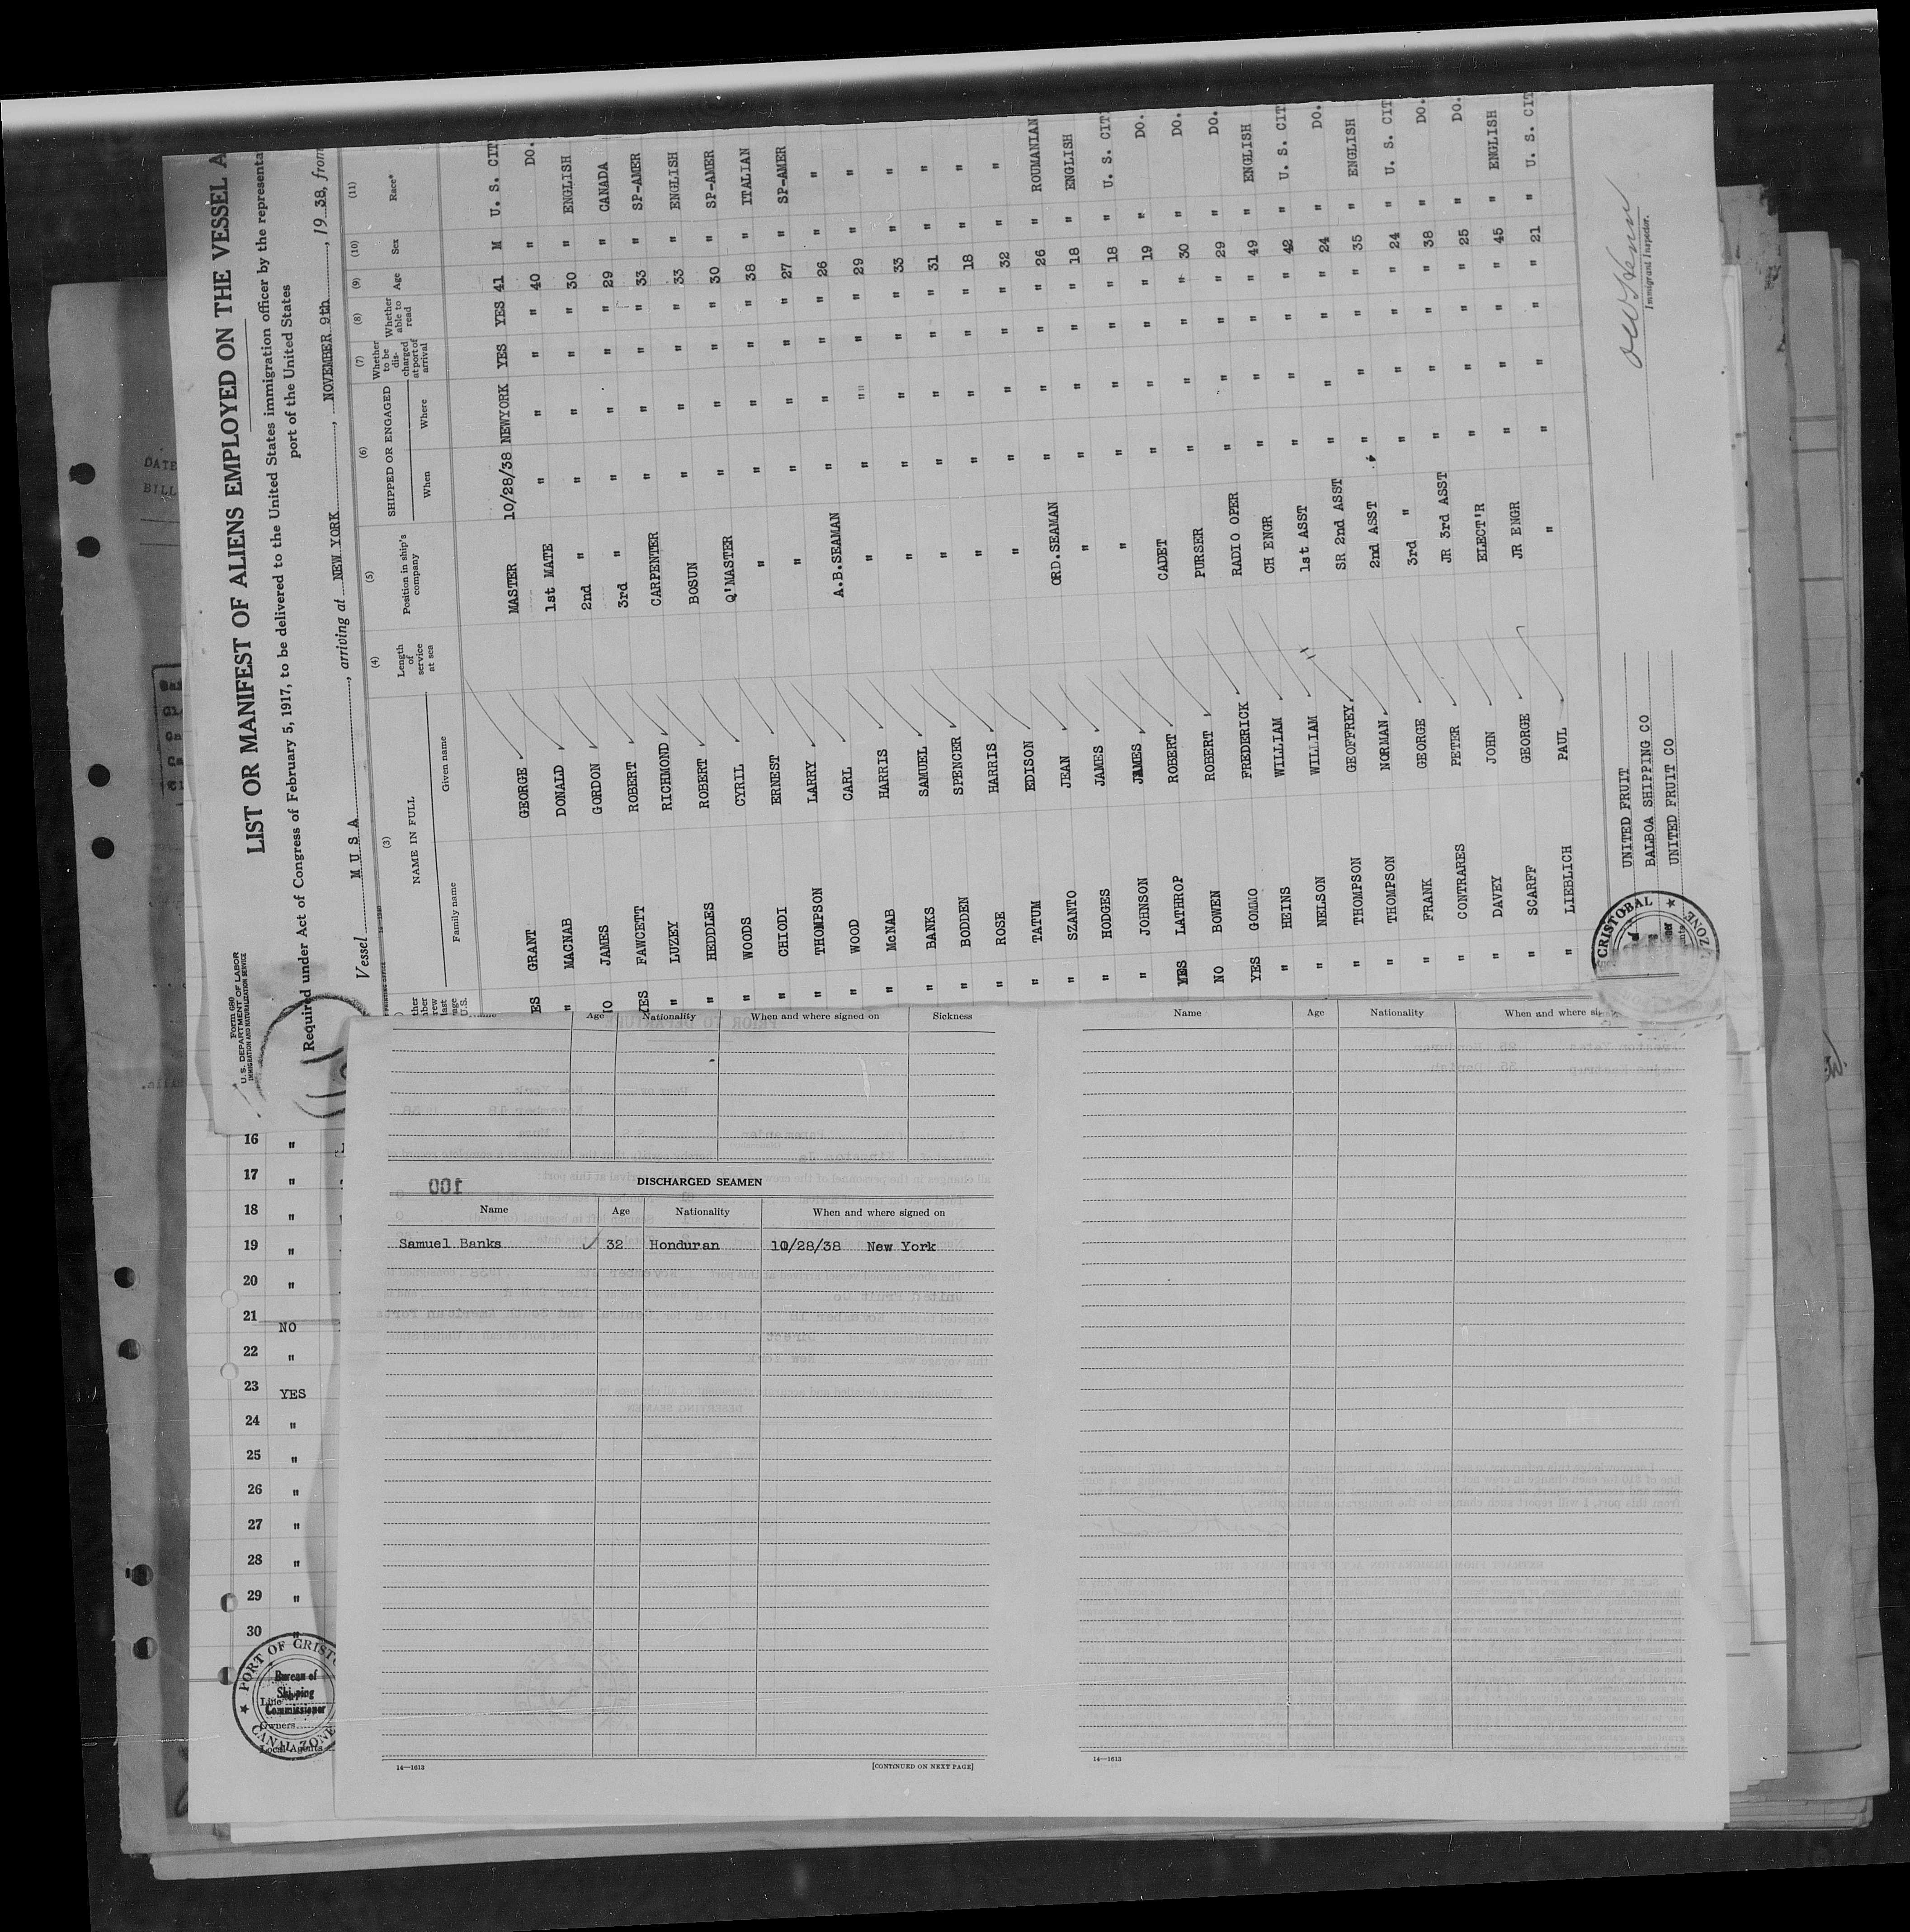 Form 680
U. S. DEPARTMENT OF LABOR
IMMIGRATION AND NATURALIZATION SERVICE
LIST OR MANIFEST OF ALIENS EMPLOYED ON THE VESSEL A
Required under Act of Congress of February 5, 1917, to be delivered to the United States immigration officer by the representa
port of the United States
Vessel M U S A, arriving at NEW YORK, NOVEMBER 9th, 19 38, from
(3) (4) (5) (6) (7) (8) (9) (10) (11)
NAME IN FULL Length of service at sea Position in ship's company SHIPPED OR ENGAGED Whether to be discharged at port of arrival Whether able to read Age Sex Race*
Family name Given name When Where
ES GRANT GEORGE MASTER 10/28/38 NEWYORK YES YES 41 M U. S. CIT
" MACNAB DONALD 1st MATE " " " " 40 " DO.
IO JAMES GORDON 2nd " " " " " 30 " ENGLISH
YES FAWCETT ROBERT 3rd " " " " " 29 " CANADA
" LUZEY RICHMOND CARPENTER " " " " 33 " SP-AMER
" HEDDLES ROBERT BOSUN " " " " 33 " ENGLISH
" WOODS CYRIL Q'MASTER " " " " 30 " SP-AMER
" CHIODI ERNEST " " " " " 38 " ITALIAN
" THOMPSON LARRY " " " " " 27 " SP-AMER
" WOOD CARL A.B.SEAMAN " " " " 26 " "
" McNAB HARRIS " " " " " 29 " "
" BANKS SAMUEL " " " " " 33 " "
" BODDEN SPENCER " " " " " 31 " "
" ROSE HARRIS " " " " " 18 " "
" TATUM EDISON " " " " " 32 " "
" SZANTO JEAN ORD.SEAMAN " " " " 26 " ROUMANIAN
" HODGES JAMES " " " " " 18 " ENGLISH
" JOHNSON JAMES " " " " " 18 " U. S. CIT
YES LATHROP ROBERT CADET " " " " 19 " DO.
NO BOWEN ROBERT PURSER " " " " 30 " DO.
YES GOMMO FREDERICK RADIO OPER " " " " 29 " DO.
" HEINS WILLIAM CH ENGR " " " " 49 " ENGLISH
" NELSON WILLIAM 1st ASST " " " " 42 " U. S. CIT
" THOMPSON GEOFFREY SR 2nd ASST " " " " 24 " DO.
" THOMPSON NORMAN 2nd ASST " " " " 35 " ENGLISH
" FRANK GEORGE 3rd " " " " " 24 " U. S. CIT
" CONTRARES PETER JR 3rd ASST " " " " 38 " DO.
" DAVEY JOHN ELECT'R " " " " 25 " DO.
" SCARFF GEORGE JR ENGR " " " " 45 " ENGLISH
" LIEBLICH PAUL " " " " " 21 " U. S. CIT
UNITED FRUIT
BALBOA SHIPPING CO
UNITED FRUIT CO
Immigrant Inspector.
CRISTOBAL
ZONE
DATE
BILL
Age Nationality When and where signed on Sickness
DISCHARGED SEAMEN
100
Name Age Nationality When and where signed on
Samuel Banks 32 Honduran 10/28/38 New York
14—1613 [CONTINUED ON NEXT PAGE]
Name Age Nationality When and where sig
14—1613
16 "
17 "
18 "
19 "
20 "
21 NO
22 "
23 YES
24 "
25 "
26 "
27 "
28 "
29 "
30 "
PORT OF CRIST
Bureau of
Shipping
Commissioner
CANAL ZONE
Line
Owners
Local Agents